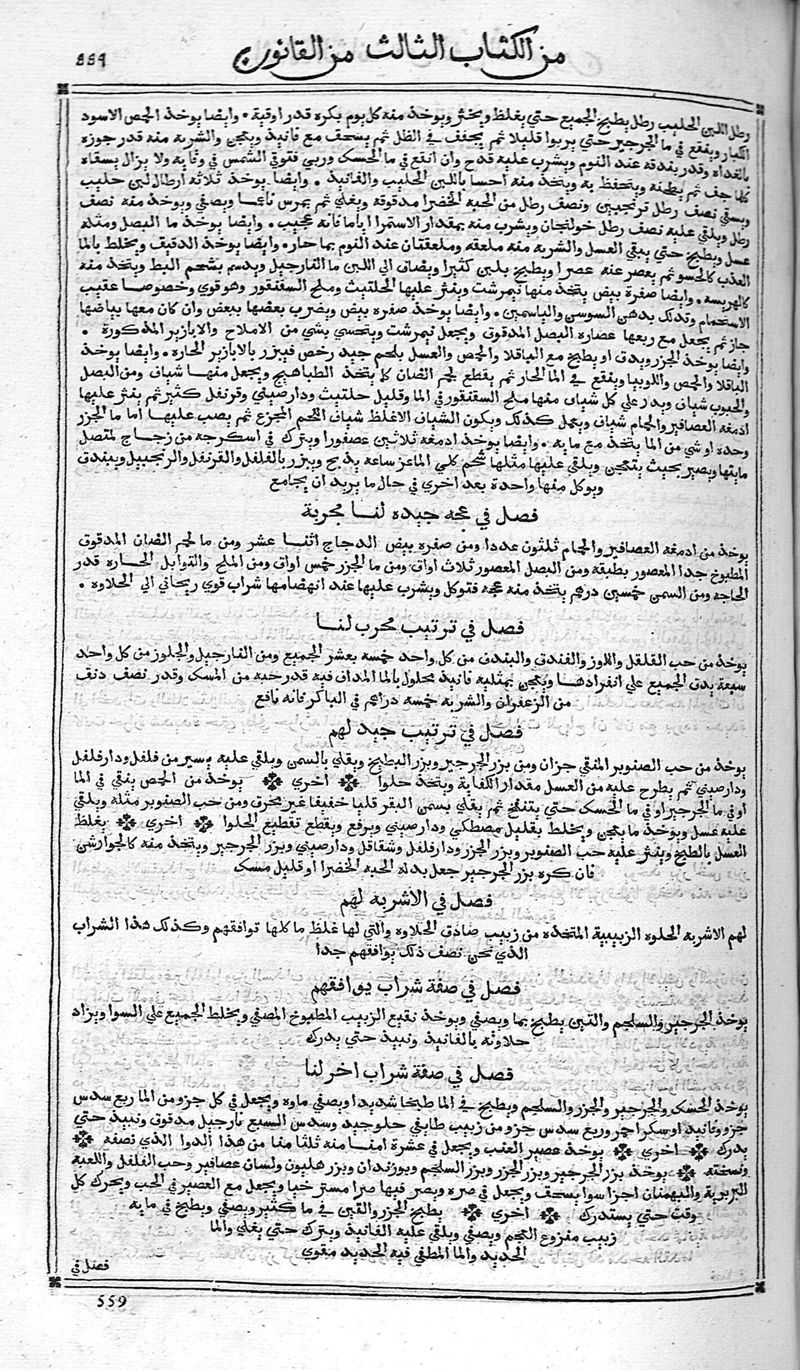 من الكتاب الثالث من القانون
٥٥٩
رطل اللبن الحليب رطل يطبخ الجميع حتي يغلظ ويخثر ويوخذ منه كل يوم بكره قدر اوقية ٠ وايضا يوخذ الحمص الاسود
الكبار وينقع في ما الجرجير حتي يربوا قليلا ثم يجفف في الظل ثم يسحف مع فانيذ ويعجن والشربه منه قدر جوزه
بالغداه وقدر بندقه عند النوم ويشرب عليه قدح وان انقع في ما الحسك وربي فتوفي الشمس في وثابه ولا يزال يسقاه
كلما جف ثم يطبنه ويحتفظ به ويتخذ منه احسا باللبن الحليب والفانيذ ٠ وايضا يوخذ ثلاثه ارطال لبن حليب
ويسقي نصف رطل ترنجبين ونصف رطل من الحبه الخضرا مدقوقه ويغلي ثم يمرس ناعما ويصفي ويوخذ منه نصف
رطل ويلقي عليه نصف رطل خولنجان ويشرب منه بمقدار الاستمرا اياما فانه عجيب ٠ وايضا يوخذ ما البصل ومثله
عسل ويطبخ حتي يبقي العسل والشربه منه ملعقه وملعقتان عند النوم بما حار ٠ وايضا يوخذ الدقيف ويخلط بالما
العذب كالحسو ثم يعصر عنه عصرا ويطبخ بلبن كثيرا ويضاف الي اللبن ما النارجيل ويدسم بشحم البط ويتخذ منه
كالهريسه ٠ وايضا صفرة بيض يتخذ منها نيمرشت وينثر عليها الحلتيت وملح السقنقور وهو قوي وخصوصا عقيب
الاستحمام وتدلك بدهن السوسن والياسمين ٠ وايضا يوخذ صفره بيض ويضرب بعضها ببعض وان كان معها بياضها
جاز ثم يجعل مع ربعها عصاره البصل المدقوف ويجعل نيمرشت ويتحسي بشي من الاملاح والابازير المذكورة ٠
وايضا يوخذ الجزر ويدق او يطبخ مع الباقلا والحمص والعسل بلحم جيد رخص فيبزر بالابازير الحاره ٠ وايضا يوخذ
الباقلا والحمص واللوبيا وينقع في الما الحار ثم يقطع لحم الضان كما يتخذ الطباهيج ويجعل منها شياف ومن البصل
والحبوب شياف ويدر علي كل شياف منها ملح السقنقور في الما وقليل حلتيت ودارصيني وقرنفل كثير ثم ينثر عليها
ادمغه العصافير والحمام شياف ويعمل كذلك ويكون الشياف الاغلظ شياف اللحم المجزع ثم يصب عليها اما ما الجزر
وحده او شي من الما يتخذ مع مايه ٠ وايضا يوخذ ادمغه ثلاثين عصفورا ويترك في اسكرجه من زجاج متصل
مايتها ويصير بحيث يتعجن ويلقي عليها مثلها شحم كلي الماعز ساعه يذبح ويبزر بالفلفل والقرنفل والزنجبيل ويبندق
ويوكل منها واحدة بعد اخري في حال ما يريد ان يجامع
فصل في عجه جيده لنا مجربة
يوخذ من ادمغه العصافير والحمام ثلثون عددا ومن صفره بيض الدجاج اثنا عشر ومن ما لحم الضان المدقوف
المطبوخ جدا المعصور بطبقه ومن البصل المعصور ثلاث اواق ومن ما الجزر خمس اواق ومن الملح والتوابل الحاره قدر
الحاجه ومن السمن خمسين درهم يتخذ منه عجه فتوكل ويشرب عليها عند انهضامها شراب قوي ريحاني الي الحلاوه ٠
فصل في ترتيب مجرب لنا
يوخذ من حب القلقل واللوز والفندق والبندف من كل واحد خمسه بعشر الجميع ومن النارجيل والجلوز من كل واحد
سبعة يدق الجميع علي انفرادها ويعجن بمثليه فانيذ محلول بالما المداف فيه قدر حبه من المسك وقدر نصف دنف
من الزعفران والشربه خمسه دراهم في الباكر فانه نافع
فصل في ترتيب جيد لهم
يوخذ من حب الصنوبر المنقي جزان ومن بزر الجرجير وبزر البطيخ ويقلي بالسمن ويلقي عليه يسير من فلفل ودار فلفل
ودارصيني ثم يطرح عليه من العسل مقدار الكفاية ويتخذ حلوا ❊ اخري ❊ يوخذ من الحمص ينقي في الما
او في ما الجرجير او في ما الحسك حتي ينتفخ ثم يقلي بسمن البقر قليا خفيفا غير محرق ومن حب الصنوبر مثله ويلقي
عليه عسل ويوخذ ما يعجن ويخلط بقليل مصطكي ودارصيني ويرفع ويقطع تقطيع الحلوا ❊ اخري ❊ يغلظ
العسل بالطبخ وينثر عليه حب الصنوبر وبزر الجزر ودارفلفل وشقاقل ودارصيني وبزر الجرجير ويتخذ منه كالجوارشن
فان كره بزر الجرجير جعل بدله الحبه الخضرا او قليل مسك
فصل في الاشربه لهم
لهم الاشربه الحلوه الزبيبية المتخذه من زبيب صادق الحلاوه والتي لها غلظ ما كلها توافقهم وكذلك هذا الشراب
الذي نحن نصف ذلك يوافقهم جدا
فصل في صفة شراب يوافقهم
يوخذ الجرجير والسلجم والتين يطبخ بما ويصفي ويوخذ نقيع الزبيب المطبوخ المصفي ويخلط الجميع علي السوا ويزاد
حلاوته بالفانيذ ونبيذ حتي يدرك
فصل في صفة شراب اخر لنا
يوخذ الحسك والجرجير والجزر والسلجم ويطبخ في الما طبخا شديدا ويصفي ماوه ويجعل في كل جزو من الما ربع سدس
جزو فانيذ او سكر احمر وربع سدس جزو من زبيب طايفي حلو جيد وسدس السبع نارجيل مدقوق ونبيذ حتي
يدرك ❊ اخري ❊ يوخذ عصير العنب ويجعل في عشرة امنا منه ثلثا منا من هذا الدوا الذي نصفه ❊
ونسخته ❊ يوخذ بزر الجرجير وبزر الجزر وبزر السلجم وبوزندان وبزر هليون ولسان عصافير وحب الفلفل واللعبه
البربرية والبهمنان اجزا سوا يسحف ويجعل في صره ويصر فيها صرا مسترخيا ويجعل مع العصير في الحب ويحرك كل
وقت حتي يستدرك ❊ اخري ❊ يطبخ الجزر والتين في ما كثير ويصفي ويطبخ في مايه
زبيب منزوع العجم ويصفي ويلقي عليه الفانيذ ويترك حتي يغلي والما
الحديد والما المطفي فيه الحديد مقوي
فصل في
559